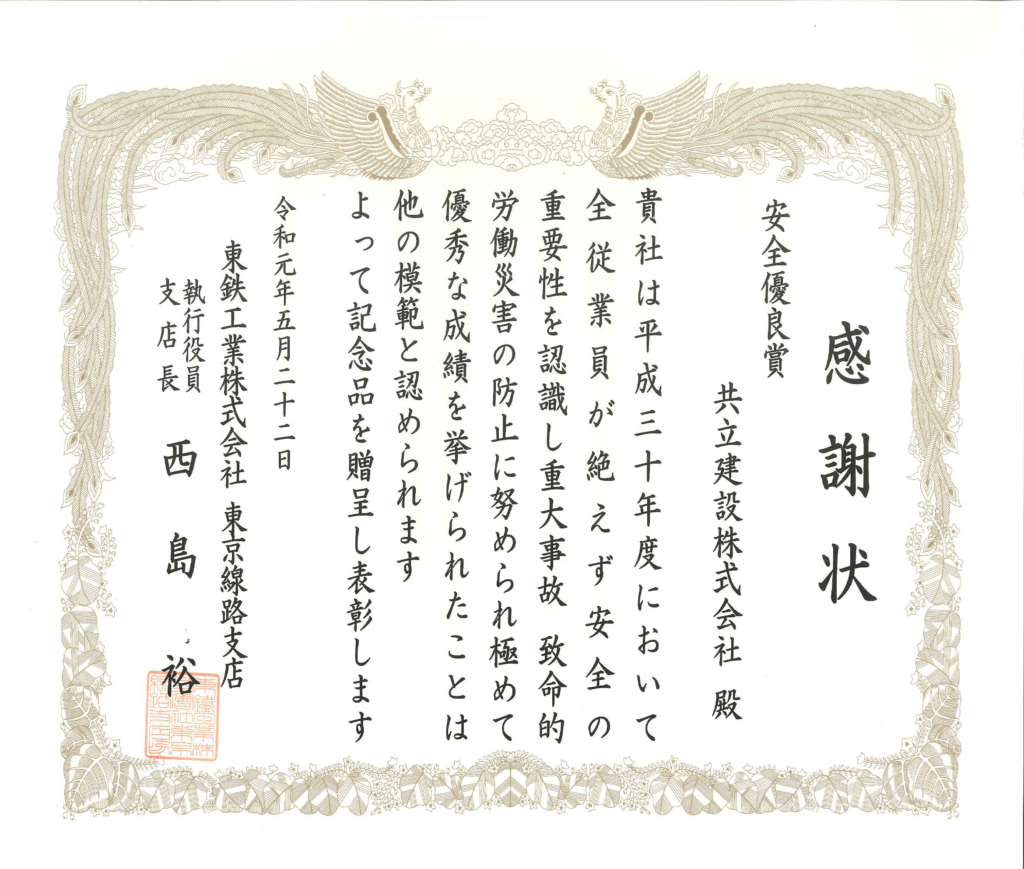 感謝状
安全優良賞
共立建設株式会社 殿
貴社は平成三十年度において
全従業員が絶えず安全の
重要性を認識し重大事故 致命的
労働災害の防止に努められ極めて
優秀な成績を挙げられたことは
他の模範と認められます
よって記念品を贈呈し表彰します
令和元年五月二十二日
東鉄工業株式会社 東京線路支店
執行役員
支店長
西島 裕